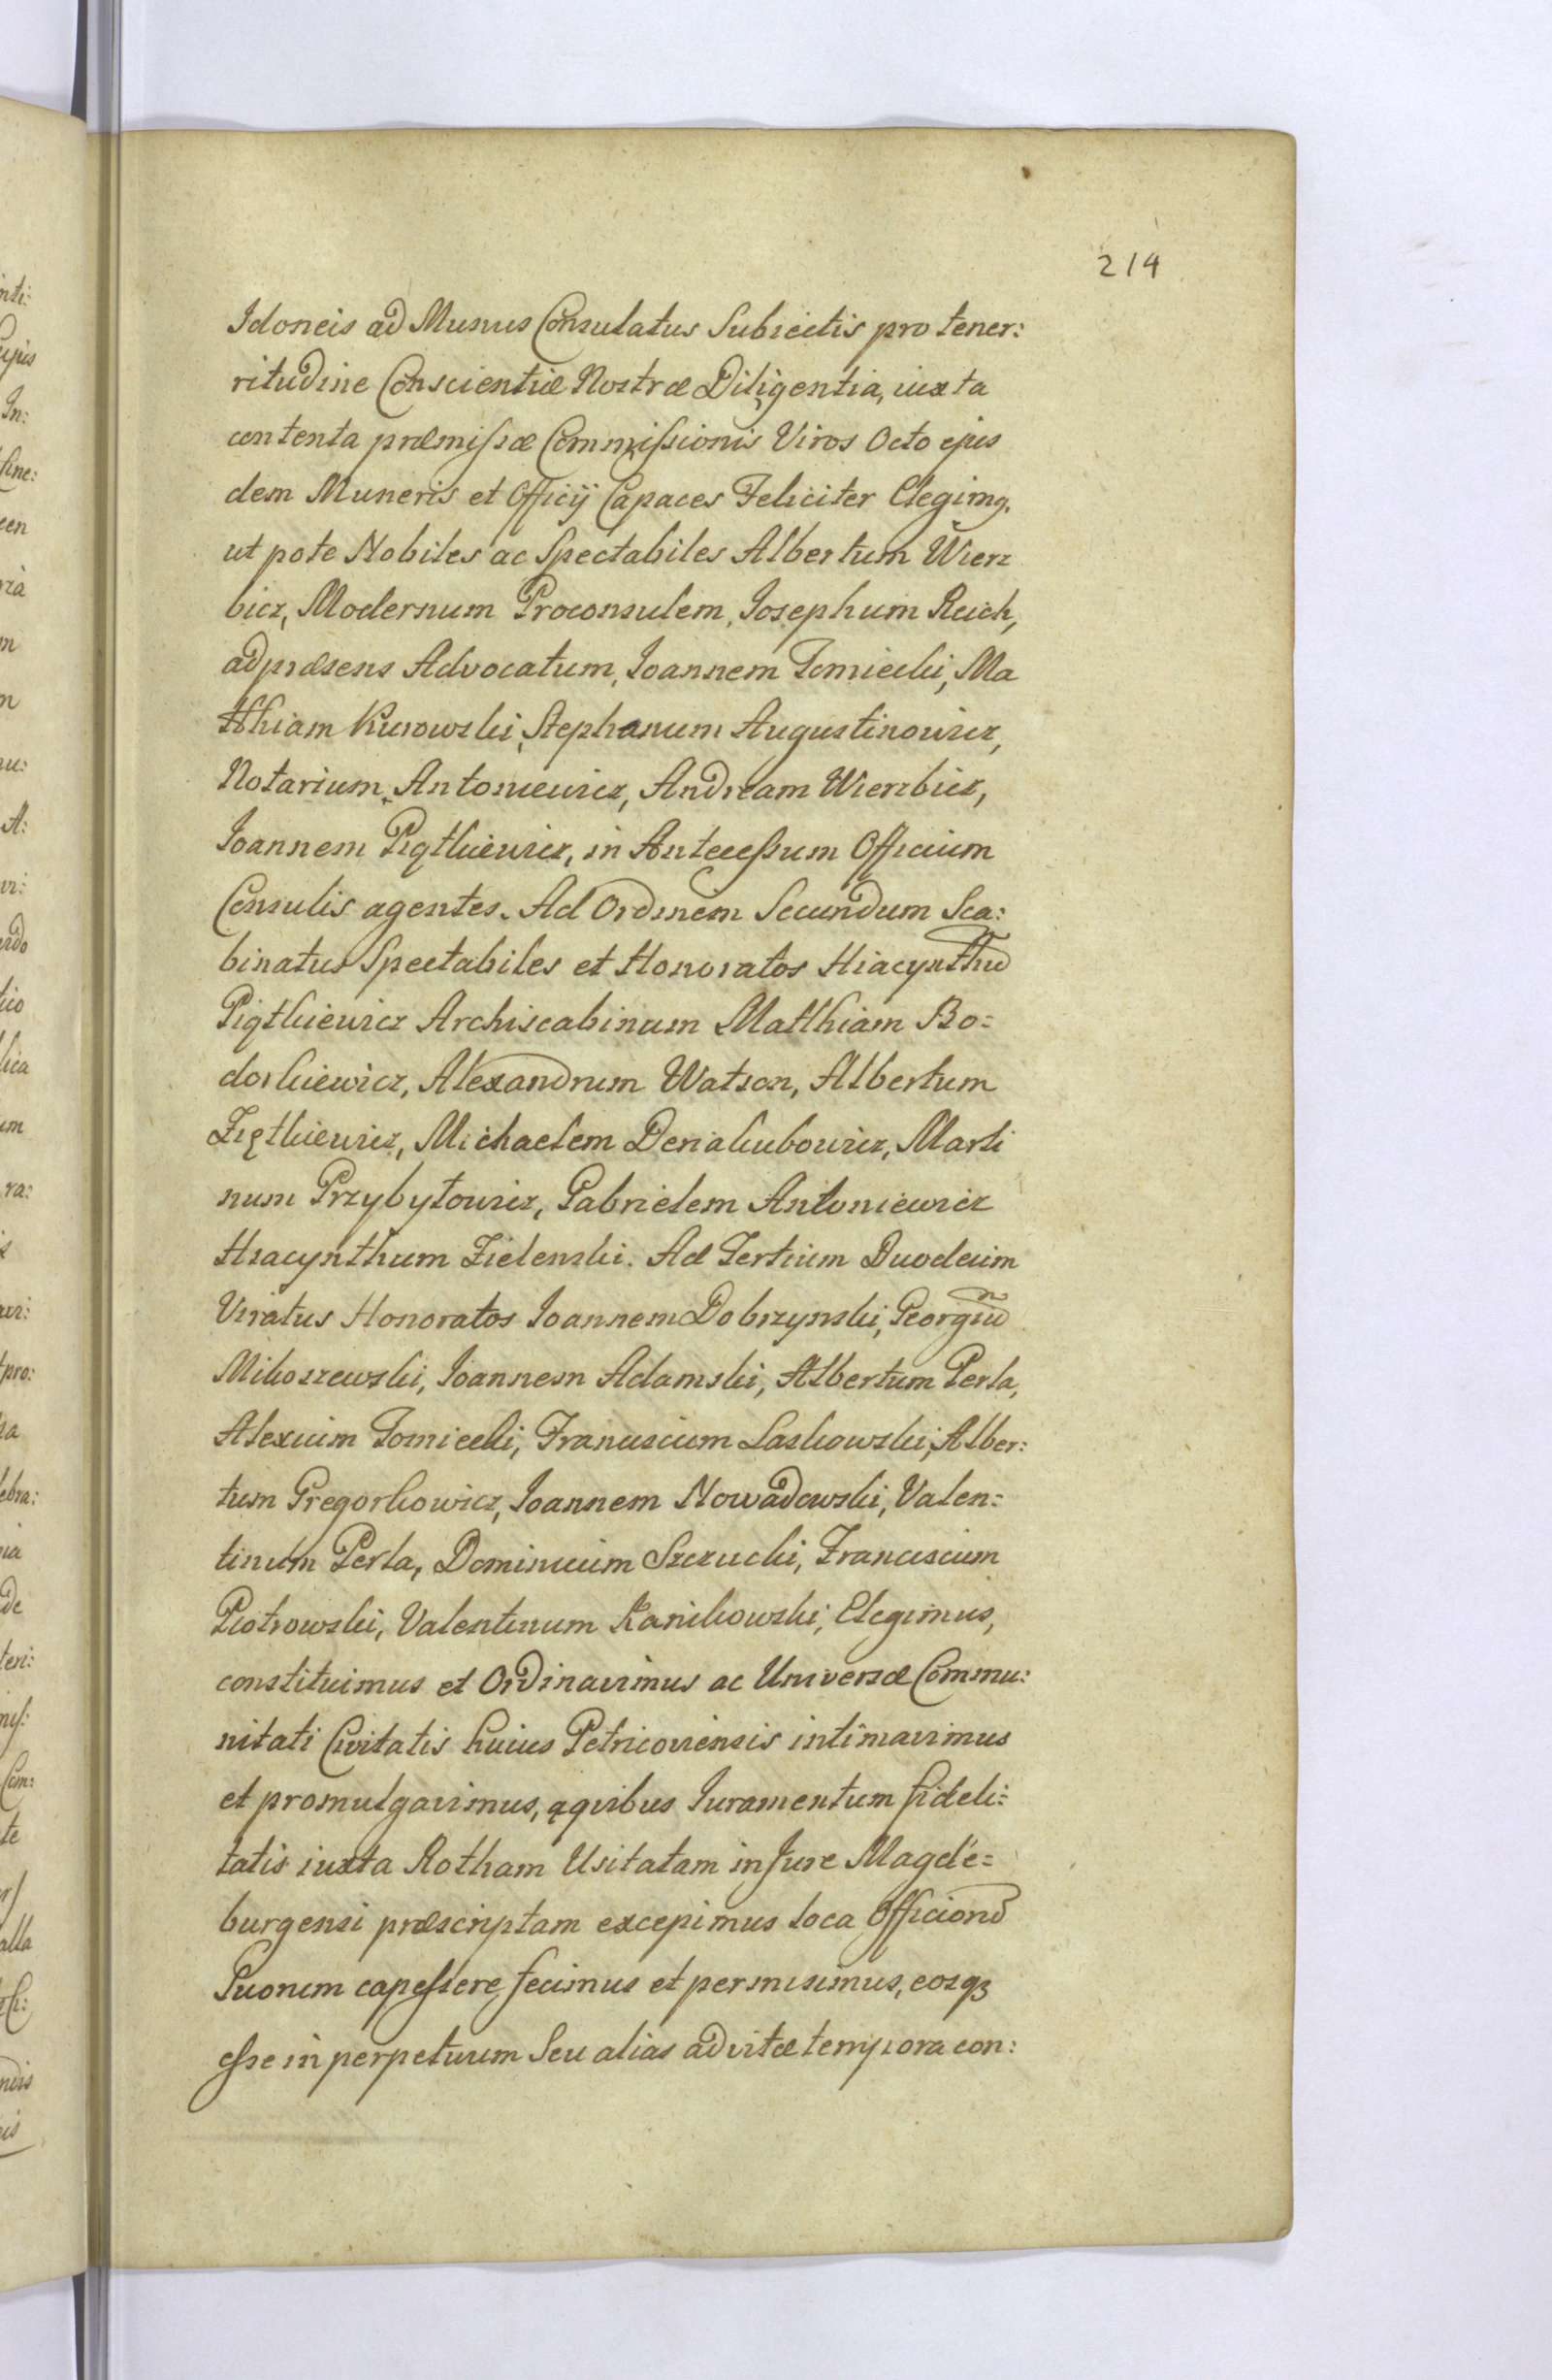 214
Idoneis ad Munus Consulatus Subiectis pro tener:
ritudine Conscientiæ Nostræ Diligentia, iuxta
contenta præmissæ Commissionis Viros Octo ejus
dem Muneris et Officij Capaces Feliciter Elegimq.
ut pote Nobiles ac Spectabiles Albertum Wierz
bicz, Modernum Proconsulem, Josephum Reich,
ad præsens Advocatum, Joannem Tomiecki, Ma
thiam Kurowski, Stephanum Augustinowicz,
Notarium, Antoniewicz, Andream Wierzbicz,
Joannem Piątkiewicz, in Antecessum Officium
Consulis agentes. Ad Ordinem Secundum Sca:
binatus Spectabiles et Honoratos Hiacynthū
Piątkiewicz Archiscabinum Matthiam Bo=
dorkiewicz, Alexandrum Watson, Albertum
Ziętkiewicz, Michaelem Deriakubowicz, Marti
num Przybytowicz, Gabrielem Antoniewicz
Hiacynthum Zielenski. Ad Tertium Duodecim
Viratus Honoratos Joannem Dobrzynski, Georgiū
Mikoszewski, Joannem Adamski, Albertum Perla,
Alexium Tomiecki, Franciscum Laskowski, Alber:
tum Gregorkowicz, Joannem Nowadowski, Valen=
tinum Perla, Dominicum Szczucki, Franciscum
Piotrowski, Valentinum Kanikowski, Elegimus,
constituimus et Ordinavimus ac Universæ Commu:
nitati Civitatis huius Petricoviensis intimavimus
et promulgavimus, aquibus Juramentum fideli=
tatis iuxta Rotham Usitatam in Jure Magde=
burgensi præscriptam excepimus loca Officiorū
Suorum capessere fecimus et permisimus, eosq3
esse in perpetuum Seu alias ad vitæ tempora con: